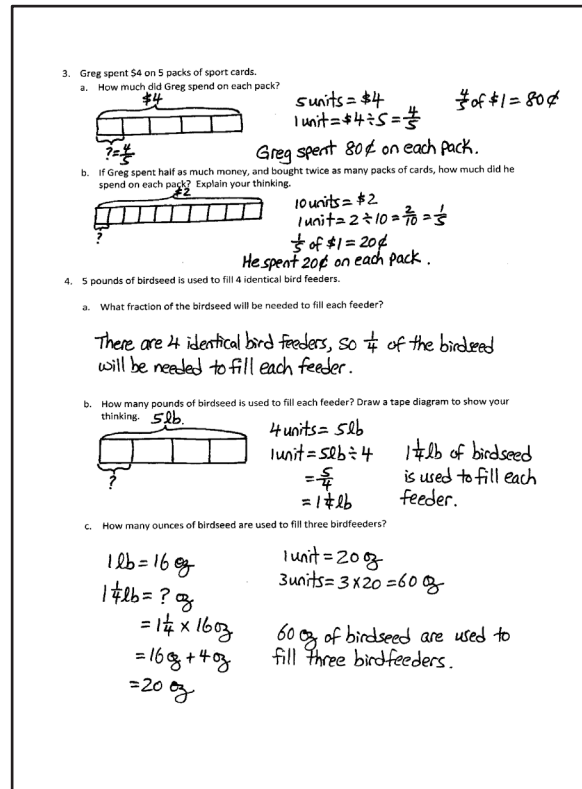 3. Greg spent $4 on 5 packs of sport cards.
a. How much did Greg spend on each pack?
$4
?=4/5
5 units = $4
1 unit = $4 ÷ 5 = 4/5
4/5 of $1 = 80¢
Greg spent 80¢ on each pack.
b. If Greg spent half as much money, and bought twice as many packs of cards, how much did he
spend on each pack? Explain your thinking.
$2
?
10 units = $2
1 unit = 2 ÷ 10 = 2/10 = 1/5
1/5 of $1 = 20¢
He spent 20¢ on each pack.
4. 5 pounds of birdseed is used to fill 4 identical bird feeders.
a. What fraction of the birdseed will be needed to fill each feeder?
There are 4 identical bird feeders, so 1/4 of the birdseed
will be needed to fill each feeder.
b. How many pounds of birdseed is used to fill each feeder? Draw a tape diagram to show your
thinking.
5lb.
?
4 units = 5lb
1 unit = 5lb ÷ 4
= 5/4
= 1 1/4 lb
1 1/4 lb of birdseed
is used to fill each
feeder.
c. How many ounces of birdseed are used to fill three birdfeeders?
1 lb = 16 oz
1 1/4 lb = ? oz
= 1 1/4 × 16 oz
= 16 oz + 4 oz
= 20 oz
1 unit = 20 oz
3 units = 3 × 20 = 60 oz
60 oz of birdseed are used to
fill three birdfeeders.